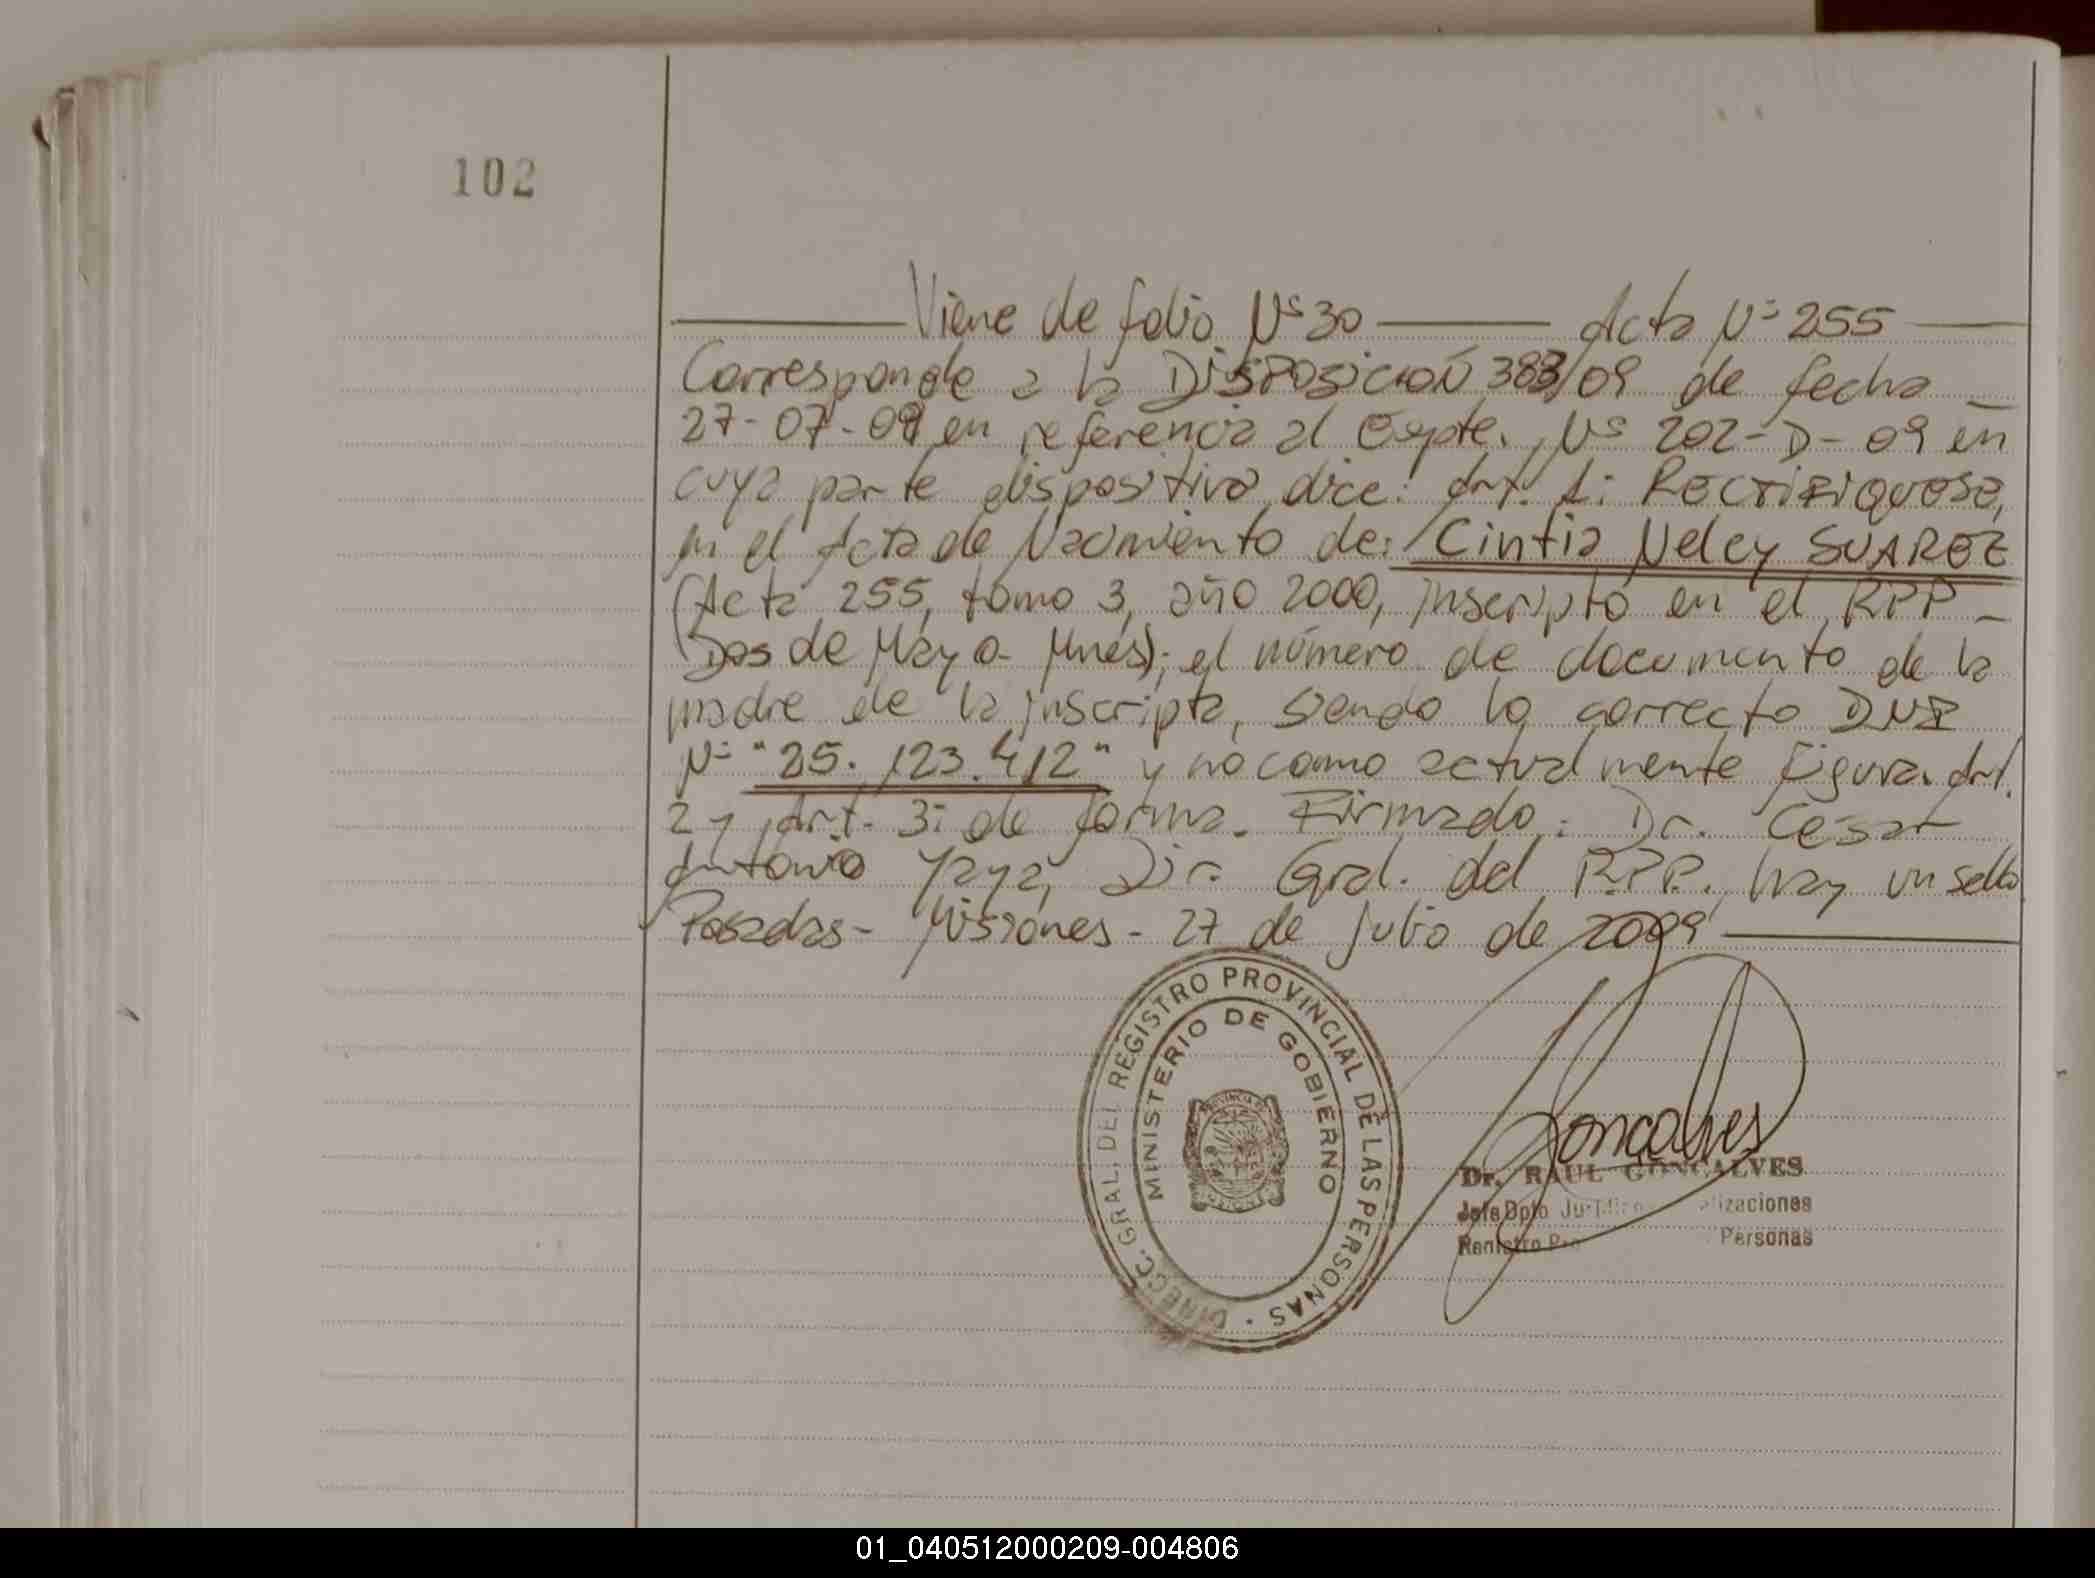 102
Viene de folio Nº 30 Acta Nº 255
Corresponde a la DISPOSICION 383/09 de fecha
27-07-09 en referencia al Expte. Nº 202-D-09 en
cuya parte dispositiva dice: Art. 1: RECTIFIQUESE,
en el Acta de Nacimiento de: Cintia Neley SUAREZ
(Acta 255, tomo 3, año 2000, inscripto en el RPP -
Dos de Mayo - Mnes); el número de documento de la
madre de la inscripta, siendo lo correcto DNI
Nº "25.123.412" y no como actualmente figura. Art.
2 y Art. 3: de forma. Firmado: Dr. César
Antonio Yaya, Dir. Gral. del R.P.P. hay un sello
Posadas - Misiones - 27 de julio de 2009
DIRECC. GRAL. DEL REGISTRO PROVINCIAL DE LAS PERSONAS
MINISTERIO DE GOBIERNO
Goncalves
Dr. RAUL GONCALVES
Jefe Dpto
Personas
01_040512000209-004806